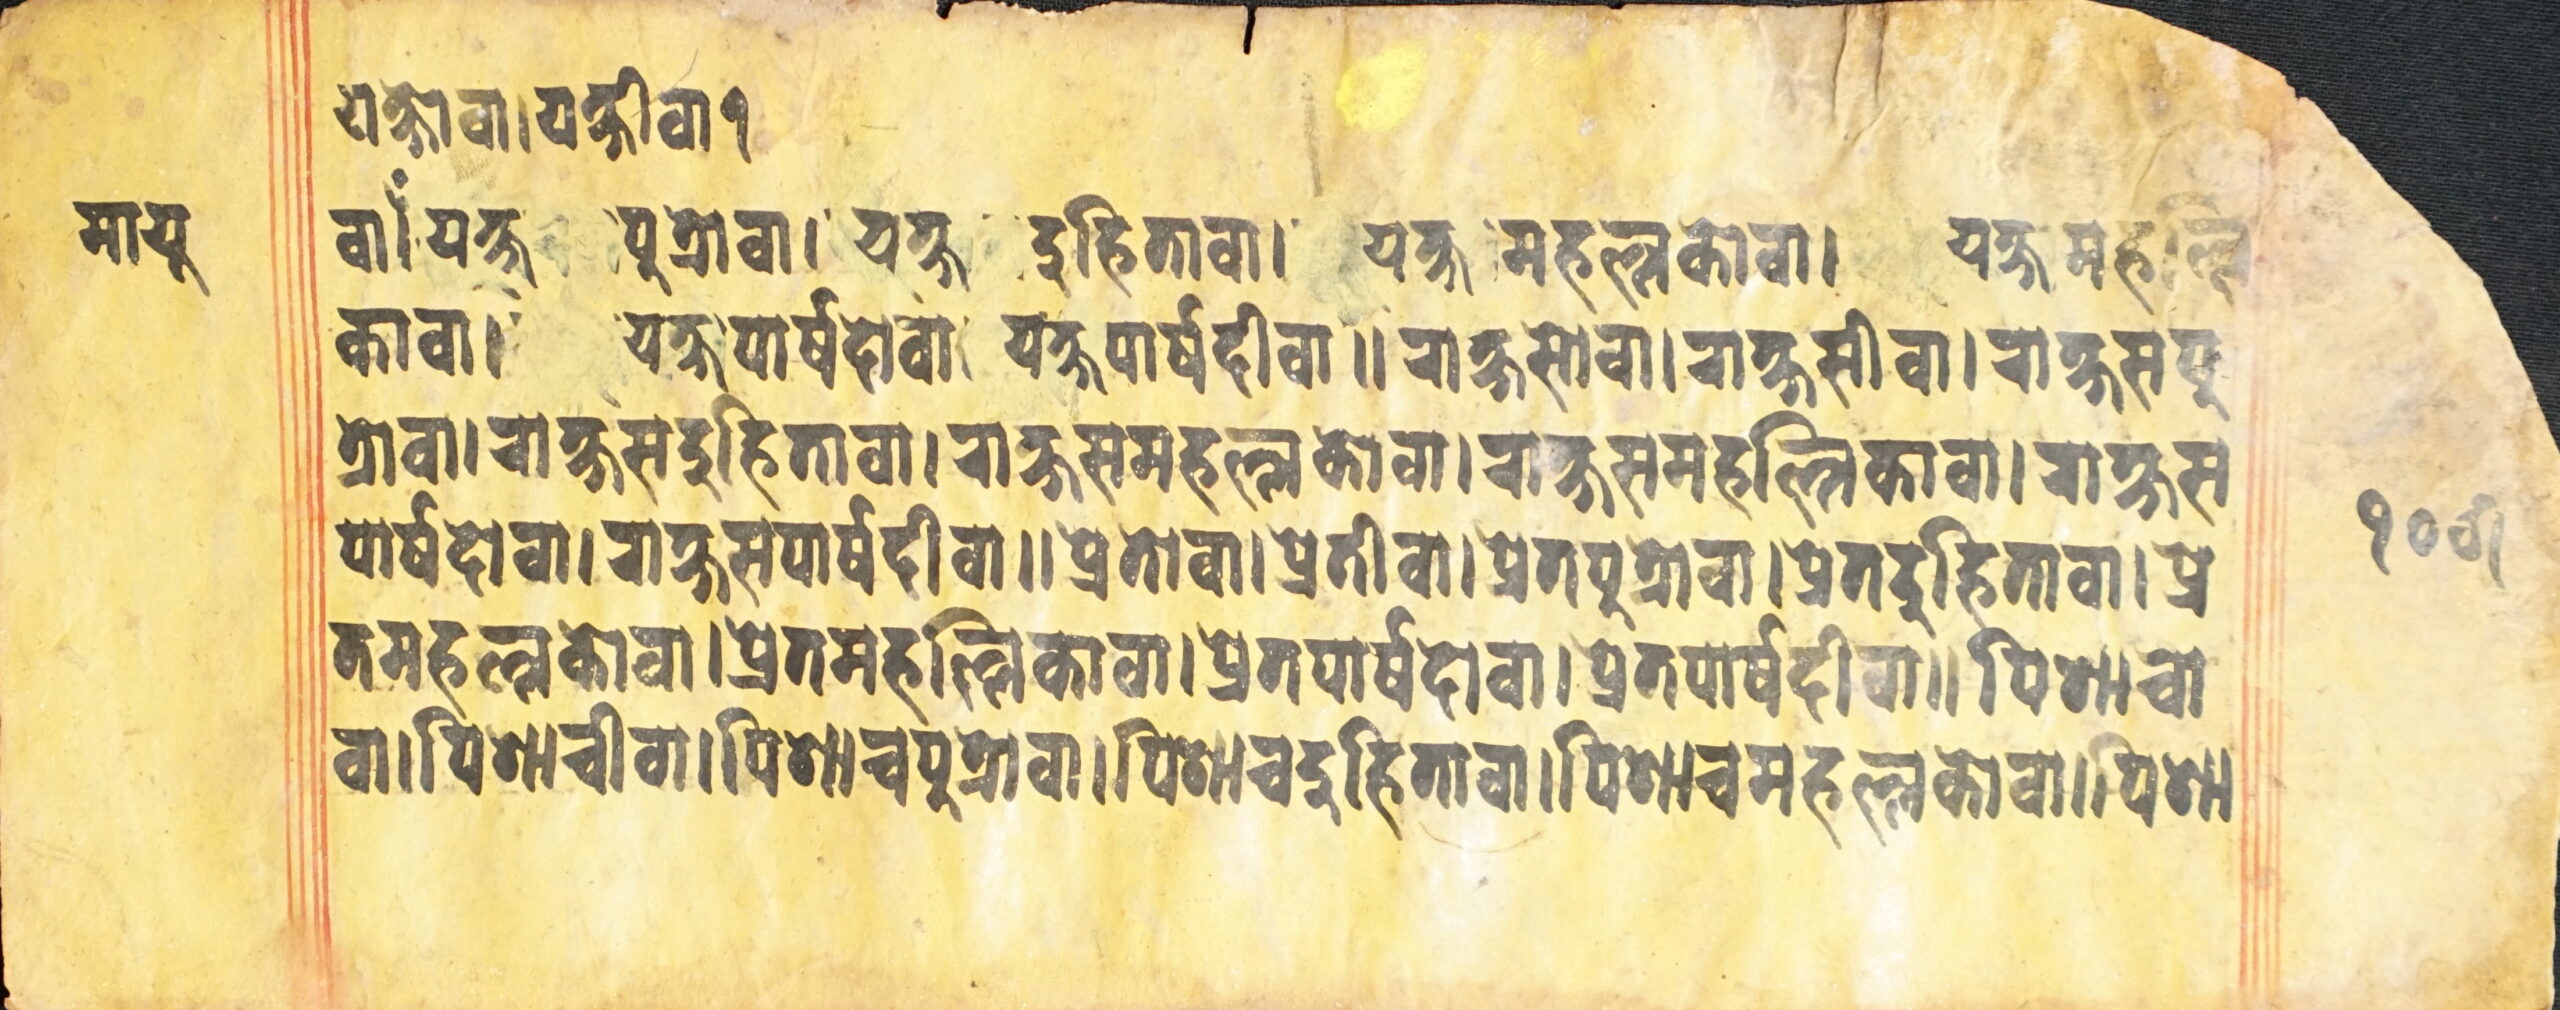 यक्षोवा।यक्षीवा१
मायू
वा।यक्ष पुत्रोवा। यक्ष दुहितावा। यक्ष महल्लकोवा। यक्षमहल्लि
कावा। यक्षपार्षदोवा यक्षपार्षदीवा॥राक्षसोवा।राक्षसीवा।राक्षसपु
त्रोवा।राक्षसदुहितावा।राक्षसमहल्लकोवा।राक्षसमहल्लिकावा।राक्षस
पार्षदोवा।राक्षसपार्षदीवा॥प्रेतोवा।प्रेतीवा।प्रेतपुत्रोवा।प्रेतदुहितावा।प्रे
तमहल्लकोवा।प्रेतमहल्लिकावा।प्रेतपार्षदोवा।प्रेतपार्षदीवा॥पिशाचो
वा।पिशाचीवा।पिशाचपुत्रोवा।पिशाचदुहितावा।पिशाचमहल्लकोवा॥पिशा